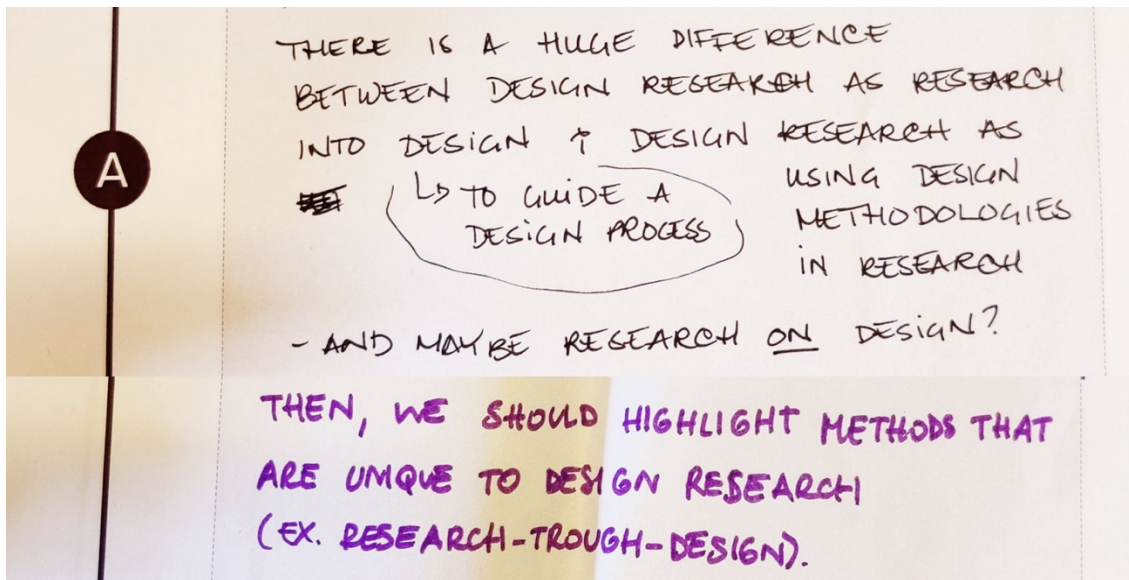 A
THERE IS A HUGE DIFFERENCE
BETWEEN DESIGN RESEARCH AS RESEARCH
INTO DESIGN & DESIGN RESEARCH AS
↳ TO GUIDE A
DESIGN PROCESS
USING DESIGN
METHODOLOGIES
IN RESEARCH
- AND MAYBE RESEARCH ON DESIGN?
THEN, WE SHOULD HIGHLIGHT METHODS THAT
ARE UNIQUE TO DESIGN RESEARCH
(EX. RESEARCH-TROUGH-DESIGN).